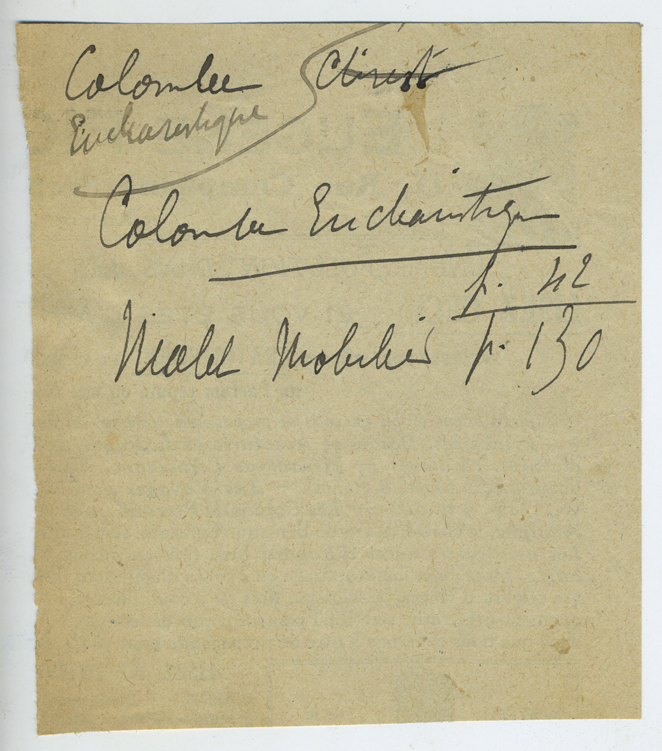 Colombe Christ
Eucharistique
Colombe Eucharistique
p. 42
Mobilier p. 130